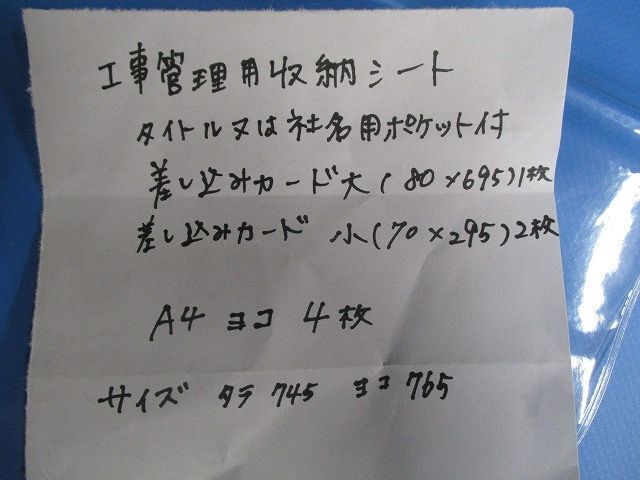 工事管理用収納シート
タイトル又は社名用ポケット付
差し込みカード大(80×695)1枚
差し込みカード 小(70×295)2枚
A4 ヨコ 4枚
サイズ タテ 745 ヨコ 765